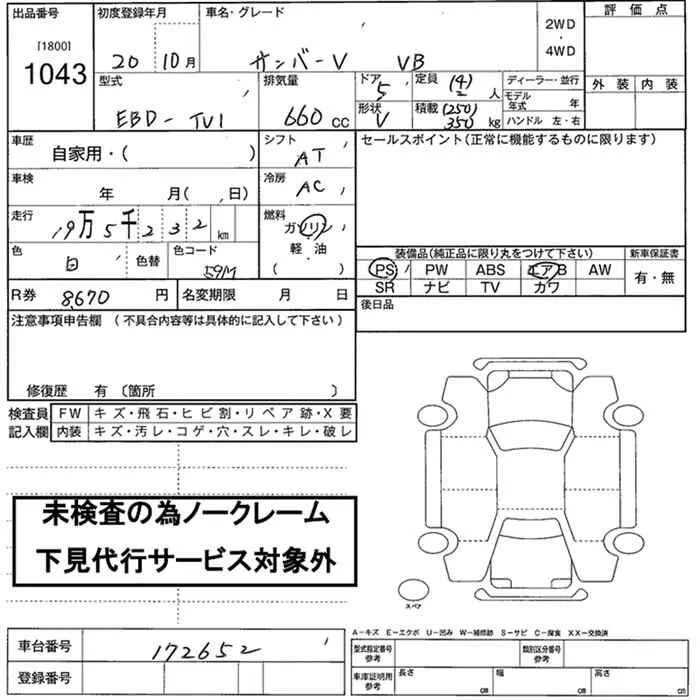 出品番号 初度登録年月 車名・グレード 評価点
[1800]
1043
20 10月 サンバーV VB 2WD・4WD
型式 排気量 ドア 5 定員 (4) 2 人 ディーラー・並行 外装 内装
モデル年式 年
EBD-TV1 660cc 形状 V 積載 (250) 350 kg ハンドル 左・右
車歴 自家用・( ) シフト AT セールスポイント(正常に機能するものに限ります)
車検 年 月( 日) 冷房 AC
走行 19万5千232km 燃料 ガソリン・軽・油 ( )
色 白 色替 色コード 59M 装備品(純正品に限り丸をつけて下さい) 新車保証書
PS PW ABS エアB AW 有・無
R券 8,670円 名変期限 月 日 SR ナビ TV カワ
注意事項申告欄(不具合内容等は具体的に記入して下さい) 後日品
修復歴 有 〔箇所 〕
検査員 FW キズ・飛石・ヒビ割・リペア跡・X要
記入欄 内装 キズ・汚レ・コゲ・穴・スレ・キレ・破レ
未検査の為ノークレーム
下見代行サービス対象外
スペア
A-キズ E-エクボ U-凹み W-補修跡 S-サビ C-腐食 XX-交換済
車台番号 172652 型式指定番号 参考 類別区分番号 参考
登録番号 車庫証明用 参考 長さ cm 幅 cm 高さ cm